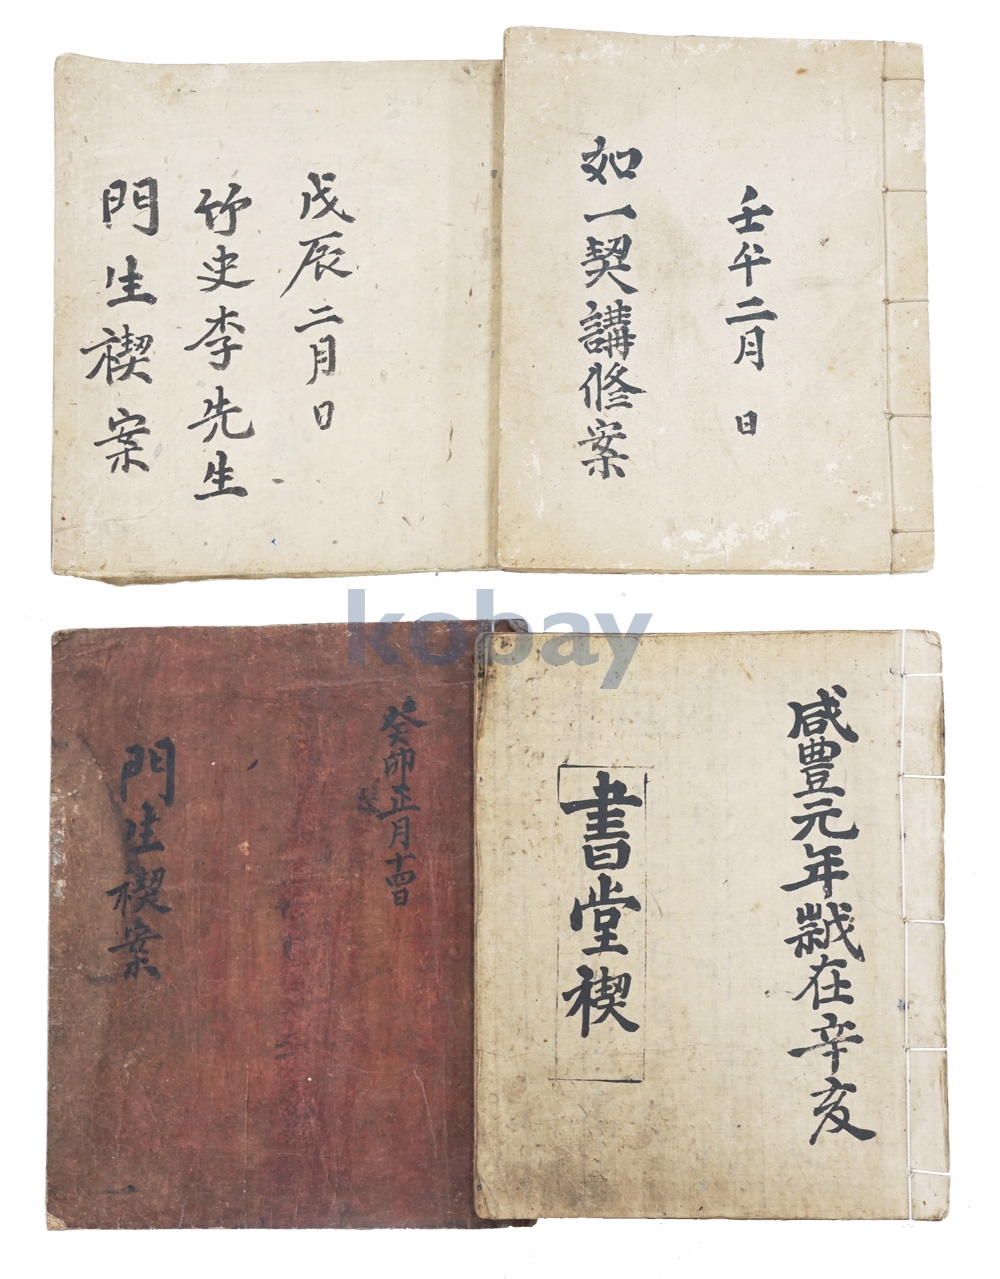 戊辰二月日
竹史李先生
門生禊案
壬午二月 日
如一契講修案
kobay
癸卯正月十四日
門生禊案
咸豊元年歲在辛亥
書堂禊